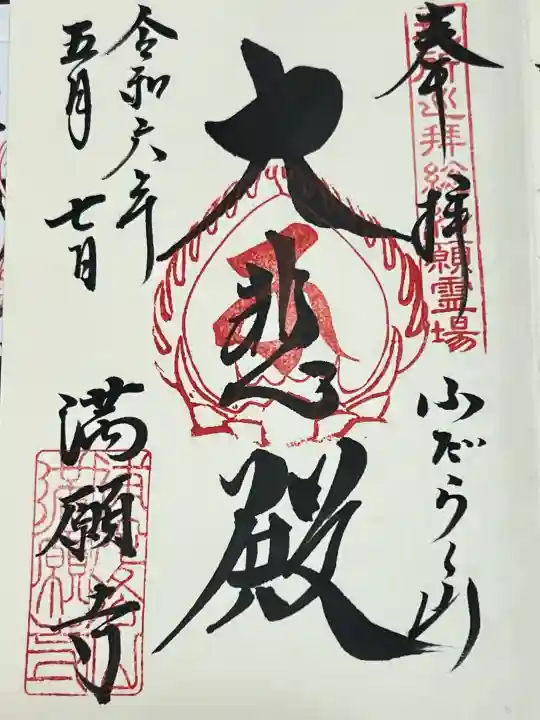 奉拝
札所巡拝総結願霊場
ふだらく山
大悲殿
令和六年
五月七日
満願寺